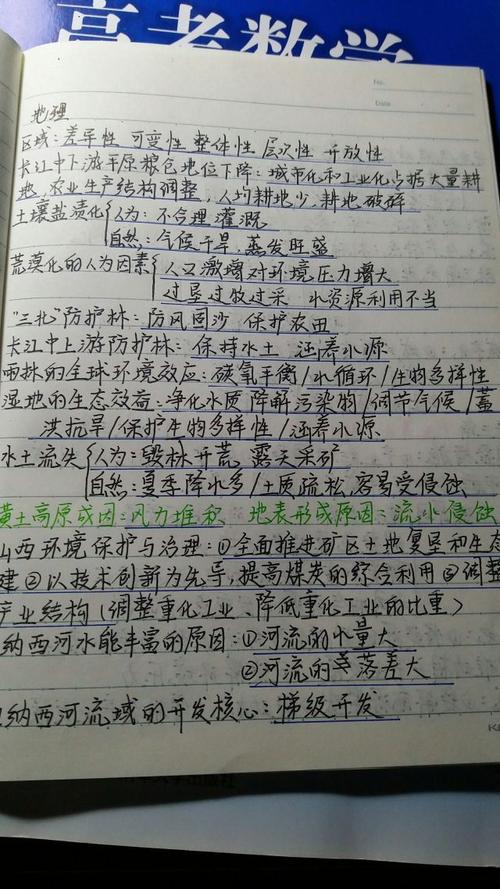 高考数学
No.
Date
地理
区域：差异性 可变性 整体性 层次性 开放性
长江中下游平原粮仓地位下降：城市化和工业化占据大量耕
地，农业生产结构调整，人均耕地少，耕地破碎
土壤盐渍化{人为：不合理灌溉
自然：气候干旱，蒸发旺盛
荒漠化的人为因素{人口激增对环境压力增大
过垦过牧过采 水资源利用不当
"三北"防护林：防风固沙 保护农田
长江中上游防护林：保持水土 涵养水源
雨林的全球环境效应：碳氧平衡/水循环/生物多样性
湿地的生态效益：净化水质 降解污染物/调节气候/蓄
洪抗旱/保护生物多样性/涵养水源
水土流失{人为：毁林开荒 露天采矿
自然：夏季降水多/土质疏松，容易受侵蚀
黄土高原成因：风力堆积 地表形成原因：流水侵蚀
山西环境保护与治理：①全面推进矿区土地复垦和生态
建 ②以技术创新为先导，提高煤炭的综合利用 ③调整
产业结构（调整重化工业、降低重化工业的比重）
纳西河水能丰富的原因：①河流的水量大
②河流的落差大
纳西河流域的开发核心：梯级开发